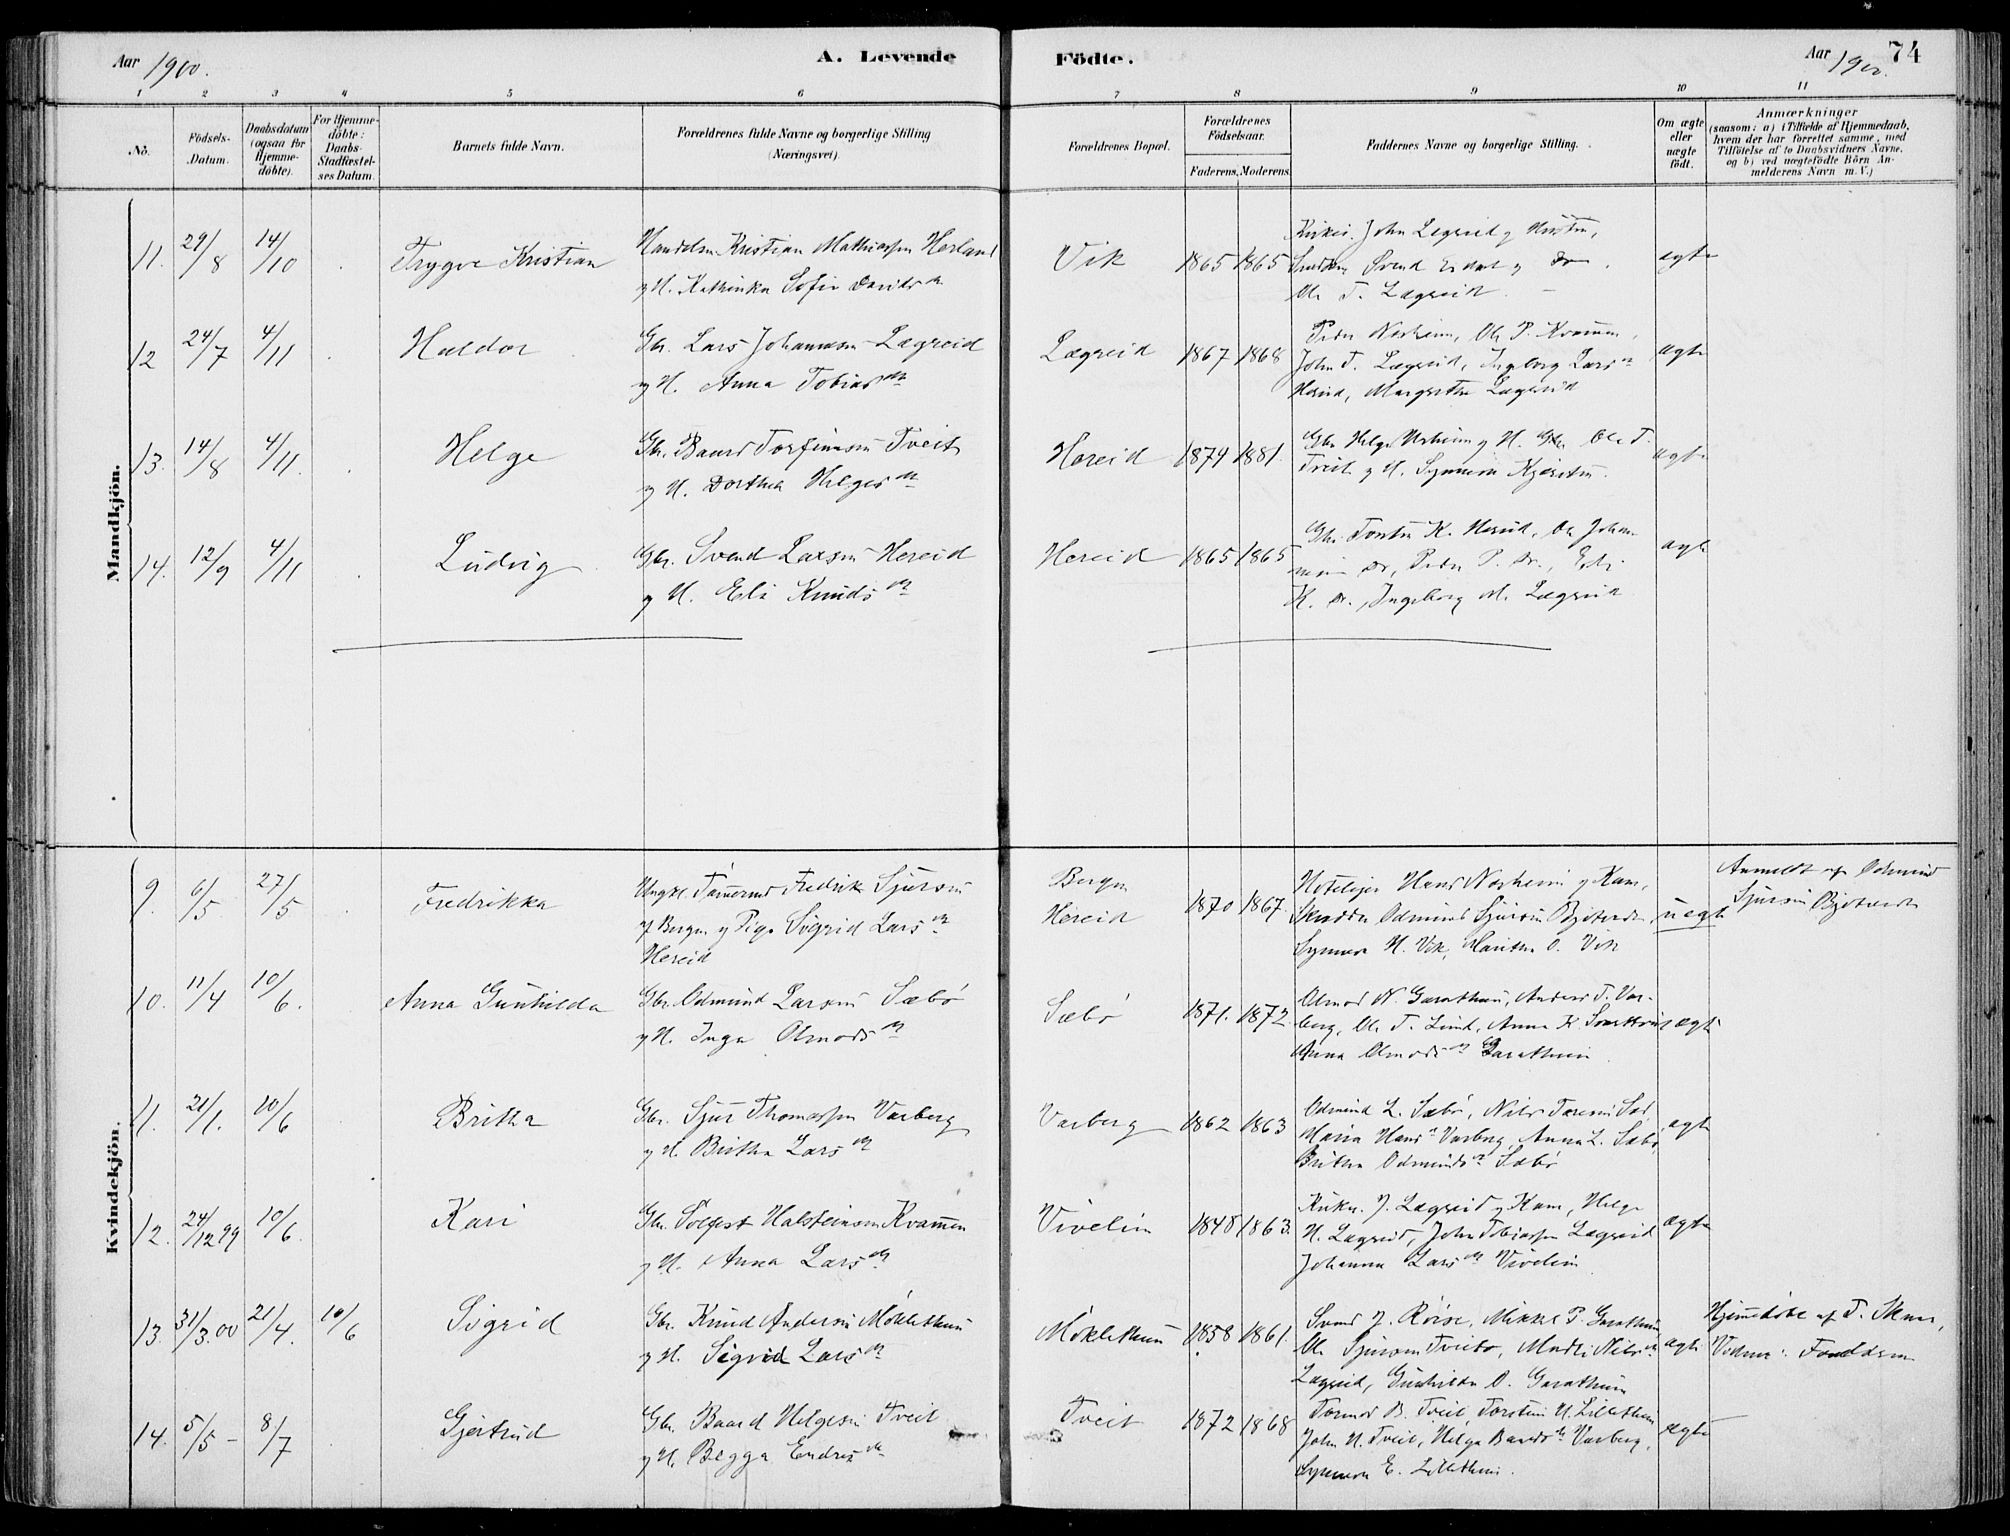 Aar 1900.
A. Levende
Födte.
Aar 1900.
74
1 2 3 4 5 6 7 8 9 10 11
No.
Födsels-Datum.
Daabsdatum (ogsaa for Hjemme-döbte).
For Hjemme-döbte: Daabs-Stadfæstel-ses Datum.
Barnets fulde Navn.
Forældrenes fulde Navne og borgerlige Stilling
(Næringsvei)
Forældrenes Bopæl.
Forældrenes Födselsaar.
Faderens. Moderens.
Faddernes Navne og borgerlige Stilling.
Om ægte eller uægte födt.
Anmærkninger
(saasom: a) i Tilfælde af Hjemmedaab,
hvem der har forrettet samme, med
Tilföielse af to Daabsvidners Navne,
og b) ved uægtefödte Börn An-
melderens Navn m. V.)
Mandkjön.
11. 29/8 14/10 Trygve Kristian
Kristian Mathiassen Herland
og H. Kathinka Sofie Davidsdr
Vik 1865 1865
John Lægreid og Hustru,
Svend og Do.
Ole T. Lægreid.
ægte
12 24/7 4/11 Haldor
Gbr. Lars Johannessen Lægreid
og H. Anna Tobiasdr
Lægreid 1867 1868
Peder Næsheim, Ole P. Kvammen,
John T. Lægreid, Ingeborg Larsdr
Hereid, Margretha Lægreid
ægte
13. 14/8 4/11. Helge
Gbr. Baard Torfinnsen Tveit
og H. Dorthea Helgesdr
Hereid 1874 1881.
Gbr. Helge og H. Gbr. Ole T.
Tveit og H. Synneva
ægte
14. 12/9 4/11 Ludvig
Gbr. Svend Larsen Hereid
og H. Eli Knudsdr
Hereid 1865 1865
Gbr. Torstein K. Hereid, Ole Johan-
Do, Peder P. Do.,
K. Do., Ingeborg M. Lægreid
ægte
Kvindekjön.
9. 6/5 27/5 Fredrikka
Ungkl. Tømmermd Fredrik Sjursen
af Bergen og Pige Sigrid Larsdr
Hereid
Bergen
Hereid
1870 1867.
Hans Næsheim og Kone,
Skrædder Odmund Sjursen
Synneva H. Vik, O. Vik
uægte
Anmeldt af Odmund
Sjursen
10. 11/4 10/6. Anna Gunhilda
Gbr. Odmund Larsen Sæbö
og H. Inga Olmodsdr
Sæbö 1871. 1872.
Olmod N. Garathun, Anders T. Var-
berg, Ole T. Lund, Anna K.
Anna Olmodsdr Garathun
ægte
11. 21/1. 10/6 Britha
Gbr. Sjur Thomassen Varberg
og H. Britha Larsdr
Varberg 1862 1863
Odmund L. Sæbö, Nils
Maria Hansdr Varberg, Anna L. Sæbö,
Britha Odmundsdr Sæbö
ægte
12. 24/12 99 10/6. Kari
Gbr. Solfest Halsteinsen Kvammen
og H. Anna Larsdr
Vivelin 1848 1863.
J. Lægreid og Kone, Helge
H. Lægreid, John Tobiassen Lægreid
Johanna Larsdr Vivelin
ægte
13. 31/3.00 21/4. 10/6 Sigrid
Gbr. Knud Andersen Möklethun
og H. Sigrid Larsdr
Möklethun 1858 1861.
Svend J. Röise, Mikkel P. Garathun,
Ole Sjursen Tveito, Nilsdr
Lægreid, Gunhilda O. Garathun
ægte
Hjemmedöbt af T.
14. 5/5 - 8/7 Gjertrud
Gbr. Baard Helgesen Tveit
og H. Begga Endresdr
Tveit 1872 1868
Tormod B. Tveit, Torstein H. Lillethun,
John H. Tveit, Helga Baardsdr Varberg,
Synneva E. Lillethun.
ægte